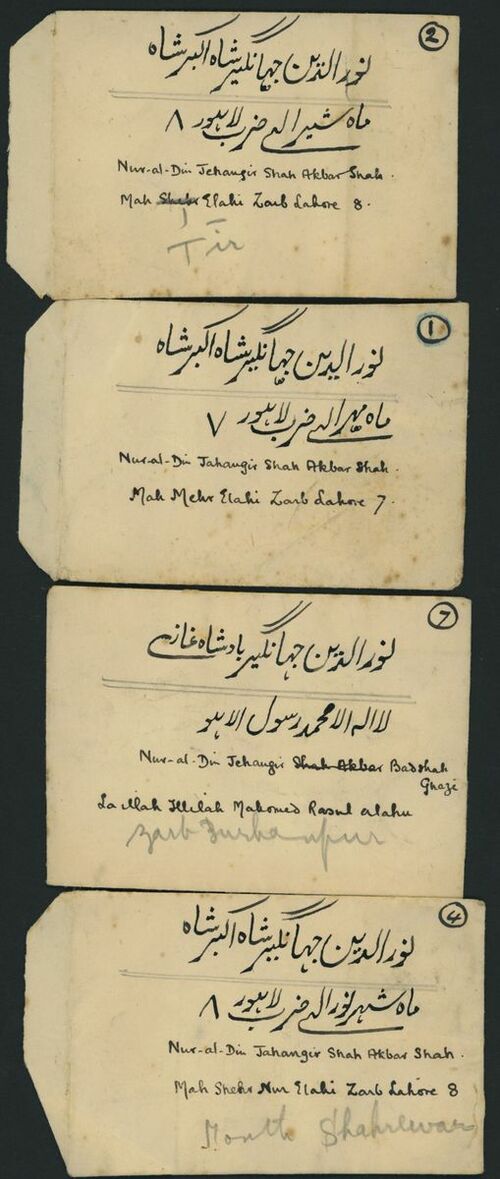 2
نور الدین جہانگیر شاہ اکبر شاہ
ماہ شیر الہی ضرب لاہور ۸
Nur-al-Din Jehangir Shah Akbar Shah.
Mah Shehr Elahi Zarb Lahore 8.
Tir
1
نور الدین جہانگیر شاہ اکبر شاہ
ماہ مہر الہی ضرب لاہور ۷
Nur-al-Din Jahangir Shah Akbar Shah.
Mah Mehr Elahi Zarb Lahore 7.
7
نور الدین جہانگیر بادشاہ غازی
لا الہ الا محمد رسول الاہو
Nur-al-Din Jehangir Shah Akbar Badshah
Ghazi
La illah Illilah Mahomed Rasul alahu
Zarb Burhanpur
4
نور الدین جہانگیر شاہ اکبر شاہ
ماہ شہر نور الہی ضرب لاہور ۸
Nur-al-Din Jahangir Shah Akbar Shah.
Mah Shehr Nur Elahi Zarb Lahore 8
Month Shahrewar